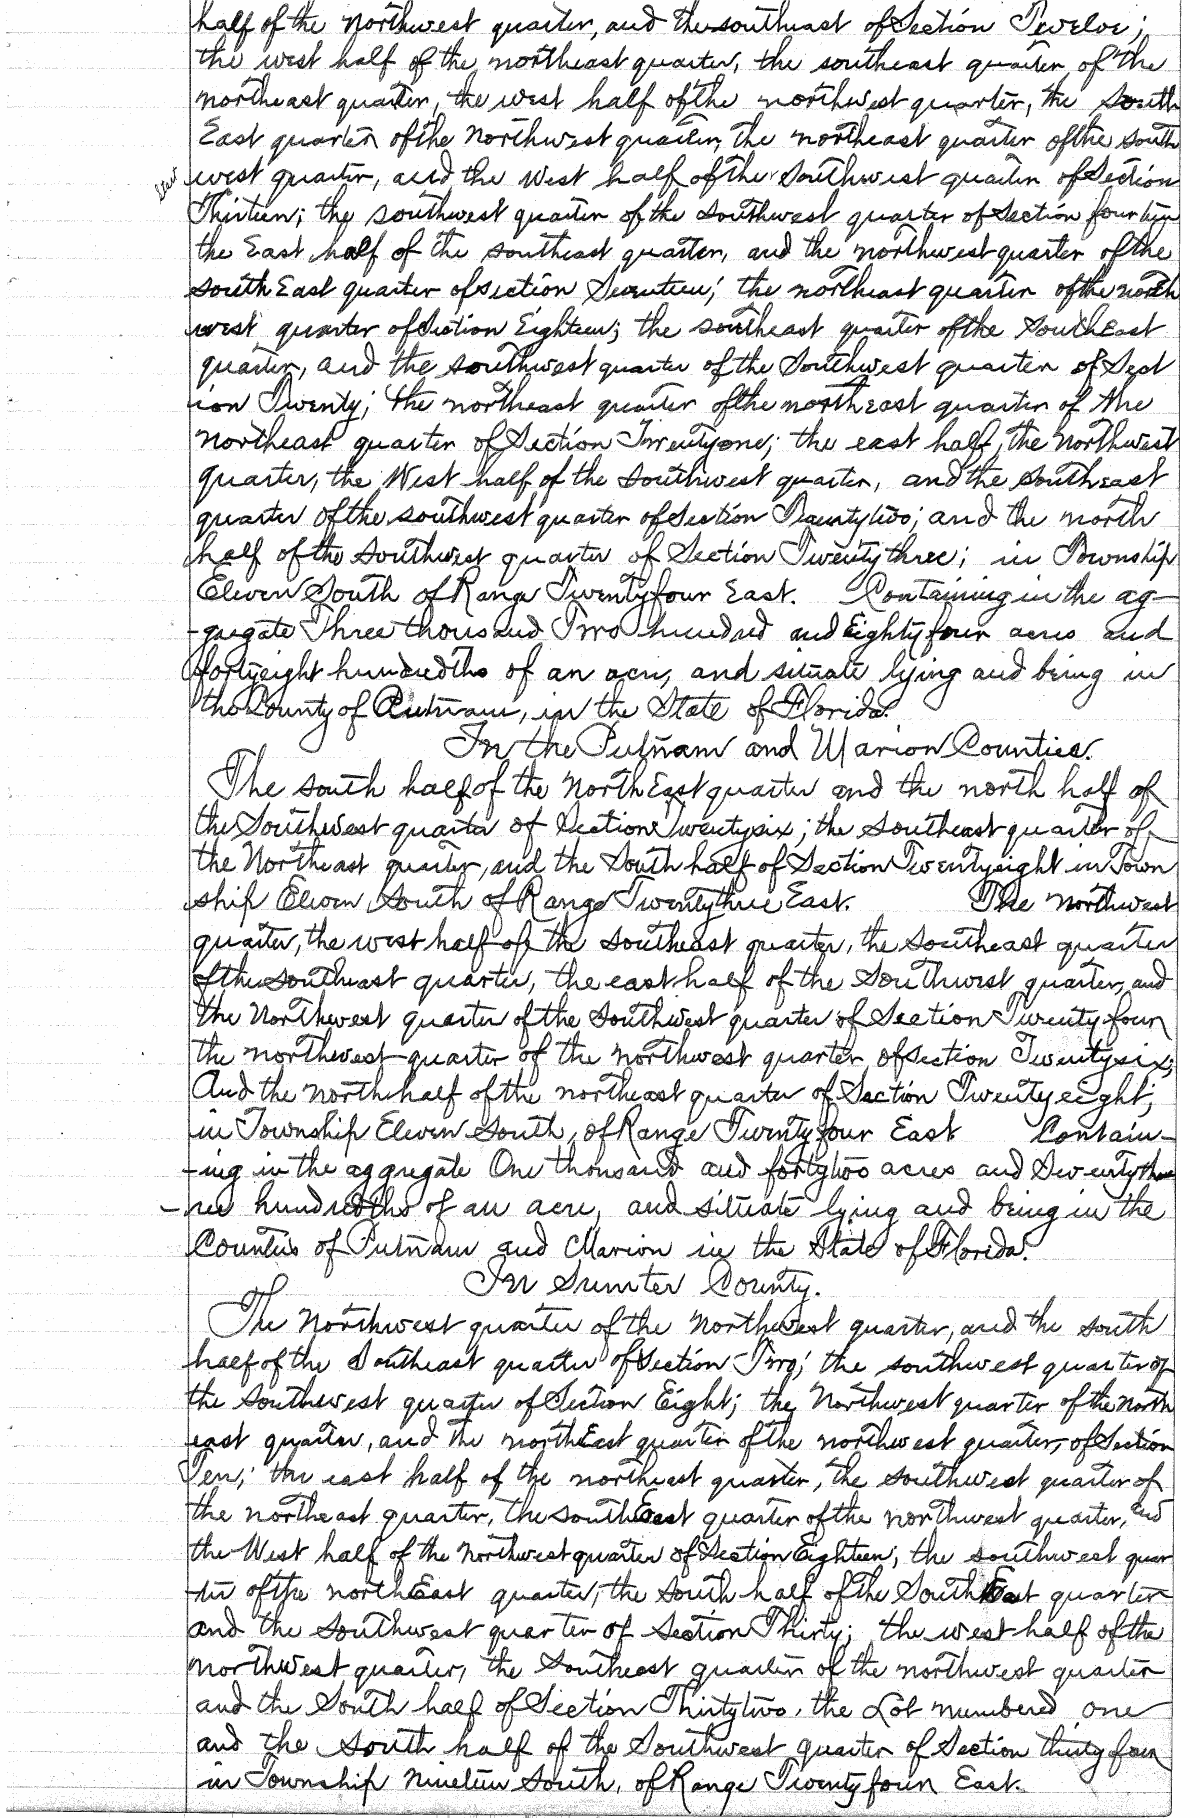 half of the Northwest quarter, and the southeast of Section Twelve;
the west half of the northeast quarter, the southeast quarter of the
northeast quarter, the west half of the northwest quarter, the South
East quarter of the Northwest quarter, the northeast quarter of the south
west quarter, and the West half of the Southwest quarter of Section
Thirteen; the southwest quarter of the southwest quarter of Section fourteen
the East half of the southeast quarter, and the northwest quarter of the
south East quarter of section Seventeen; the northeast quarter of the north
west quarter of Section Eighteen; the southeast quarter of the South East
quarter, and the southwest quarter of the Southwest quarter of Sect
ion Twenty; the northeast quarter of the northeast quarter of the
northeast quarter of Section Twentyone; the east half, the Northwest
quarter, the West half of the southwest quarter, and the southeast
quarter of the southwest quarter of Section Twentytwo; and the north
half of the Southwest quarter of Section Twentythree; in Township
Eleven South of Range Twentyfour East. Containing in the ag-
-gregate Three thousand Two hundred and Eightyfour acres and
fortyeight hundredths of an acre, and situate lying and being in
the County of Putnam, in the State of Florida.
In the Putnam and Marion Counties.
The south half of the North East quarter and the north half of
the Southwest quarter of Section Twentysix; the Southeast quarter of
the Northeast quarter, and the South half of Section Twentyeight in Town
ship Eleven South of Range Twentythree East. The Northwest
quarter, the west half of the southeast quarter, the southeast quarter
of the southeast quarter, the east half of the Southwest quarter, and
the Northwest quarter of the Southwest quarter of Section Twentyfour
the northwest quarter of the northwest quarter, of section Twentysix;
And the north half of the northeast quarter of Section Twentyeight;
in Township Eleven South, of Range Twentyfour East Contain-
-ing in the aggregate One thousand and fortytwo acres and Seventythree
hundredths of an acre, and situate lying and being in the
Counties of Putnam and Marion in the State of Florida.
In Sumter County.
The Northwest quarter of the Northwest quarter, and the south
half of the Southeast quarter of Section Two; the southwest quarter of
the southwest quarter of Section Eight; the Northwest quarter of the north
east quarter, and the northEast quarter of the northwest quarter, of Section
Ten; the east half of the northeast quarter, the southwest quarter of
the northeast quarter, the southEast quarter of the northwest quarter, and
the West half of the Northwest quarter of Section Eighteen; the southwest quar
ter of the northEast quarter, the South half of the SouthEast quarter
and the Southwest quarter of Section Thirty; the west half of the
northwest quarter, the Southeast quarter of the northwest quarter
and the South half of Section Thirtytwo, the Lot numbered one
and the South half of the Southwest quarter of Section thirtyfour
in Township nineteen South, of Range Twentyfour East.